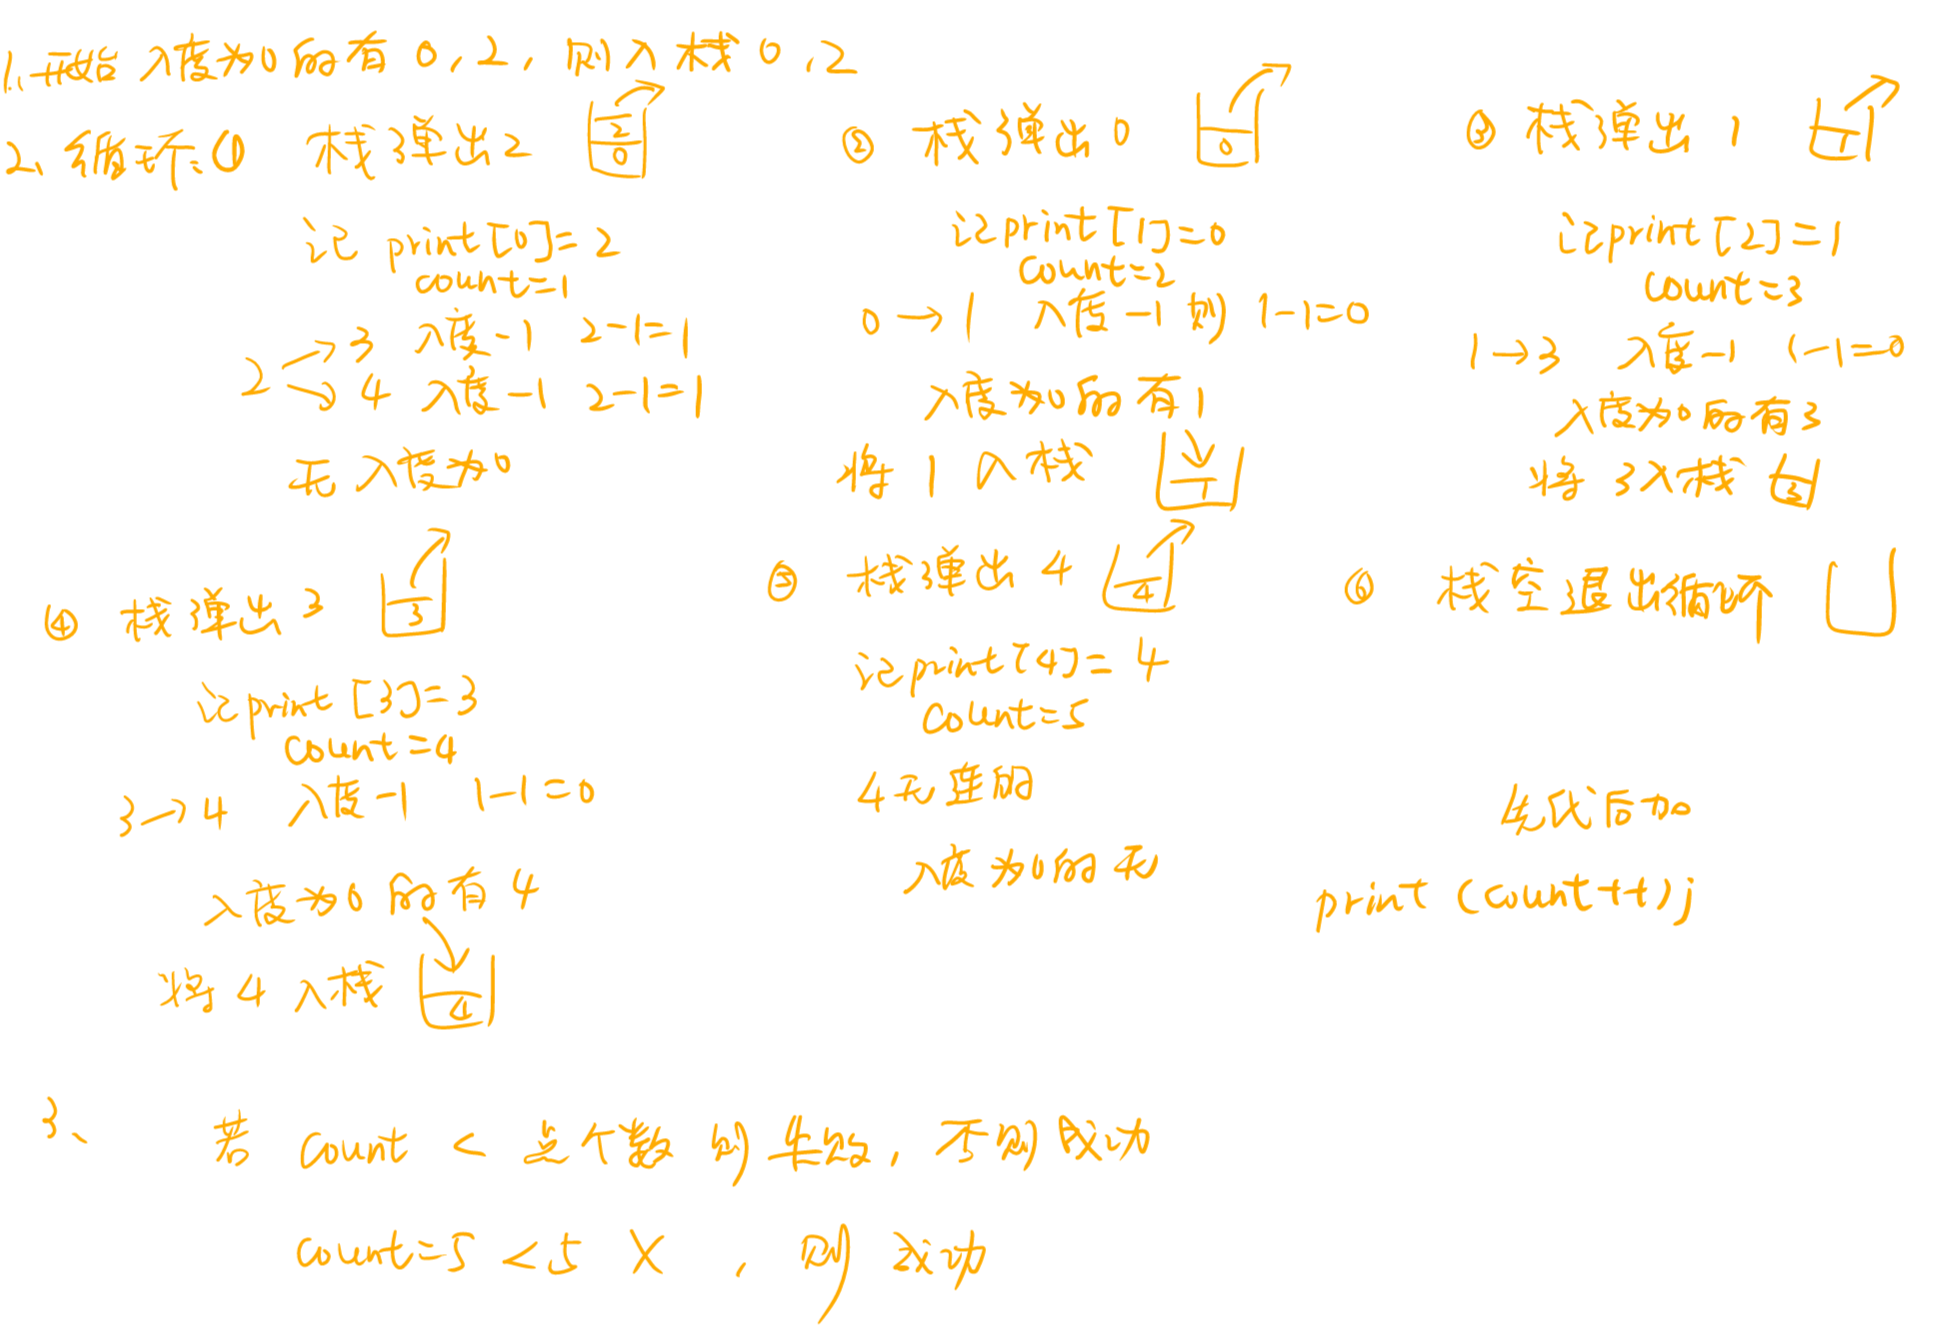 1.开始 入度为0的有 0,2, 则入栈0,2
2、循环:① 栈弹出2 2 0
记 print[0]=2
count=1
2 → 3 入度-1 2-1=1
→ 4 入度-1 2-1=1
无入度为0
② 栈弹出0 0
记print[1]=0
count=2
0→1 入度-1 则 1-1=0
入度为0的有1
将1入栈 1
③ 栈弹出1 1
记print[2]=1
count=3
1→3 入度-1 1-1=0
入度为0的有3
将3入栈 3
④ 栈弹出3 3
记print[3]=3
count=4
3→4 入度-1 1-1=0
入度为0的有4
将4入栈 4
⑤ 栈弹出4 4
记print[4]=4
count=5
4无连的
入度为0的无
⑥ 栈空退出循环
先代后加
print(count++);
3、 若 count < 点个数 则 失败, 否则成功
count=5 <5 X , 则 成功